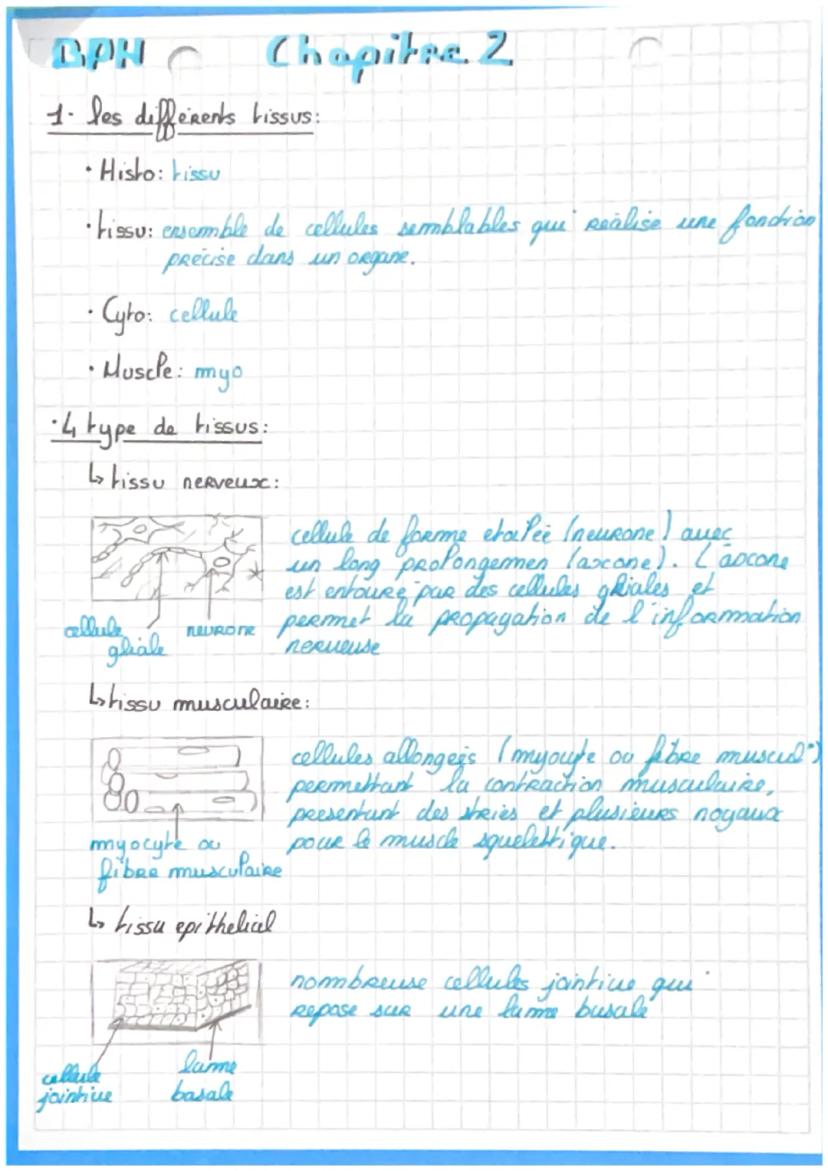 BPH Chapitre 2
1. les différents tissus:
• Histo: tissu
• tissu: ensemble de cellules semblables qui réalise une fonction
précise dans un organe.
• Cyto: cellule
• Muscle: myo
• 4 type de tissus:
↳ tissu nerveux:
cellule de forme etoilée (neurone) avec
un long prolongemen (axone). L'axone
est entouré par des cellules gliales et
permet la propagation de l'information
nerveuse
cellule
gliale
neurone
↳ tissu musculaire:
cellules allongées (myocyte ou fibre muscul°)
permettant la contraction musculaire,
presentant des stries et plusieurs noyaux
pour le muscle squelettique.
myocyte ou
fibre musculaire
↳ tissu epithelial
nombreuse cellules jointive qui
repose sur une lame basale
cellule
jointive
lame
basale